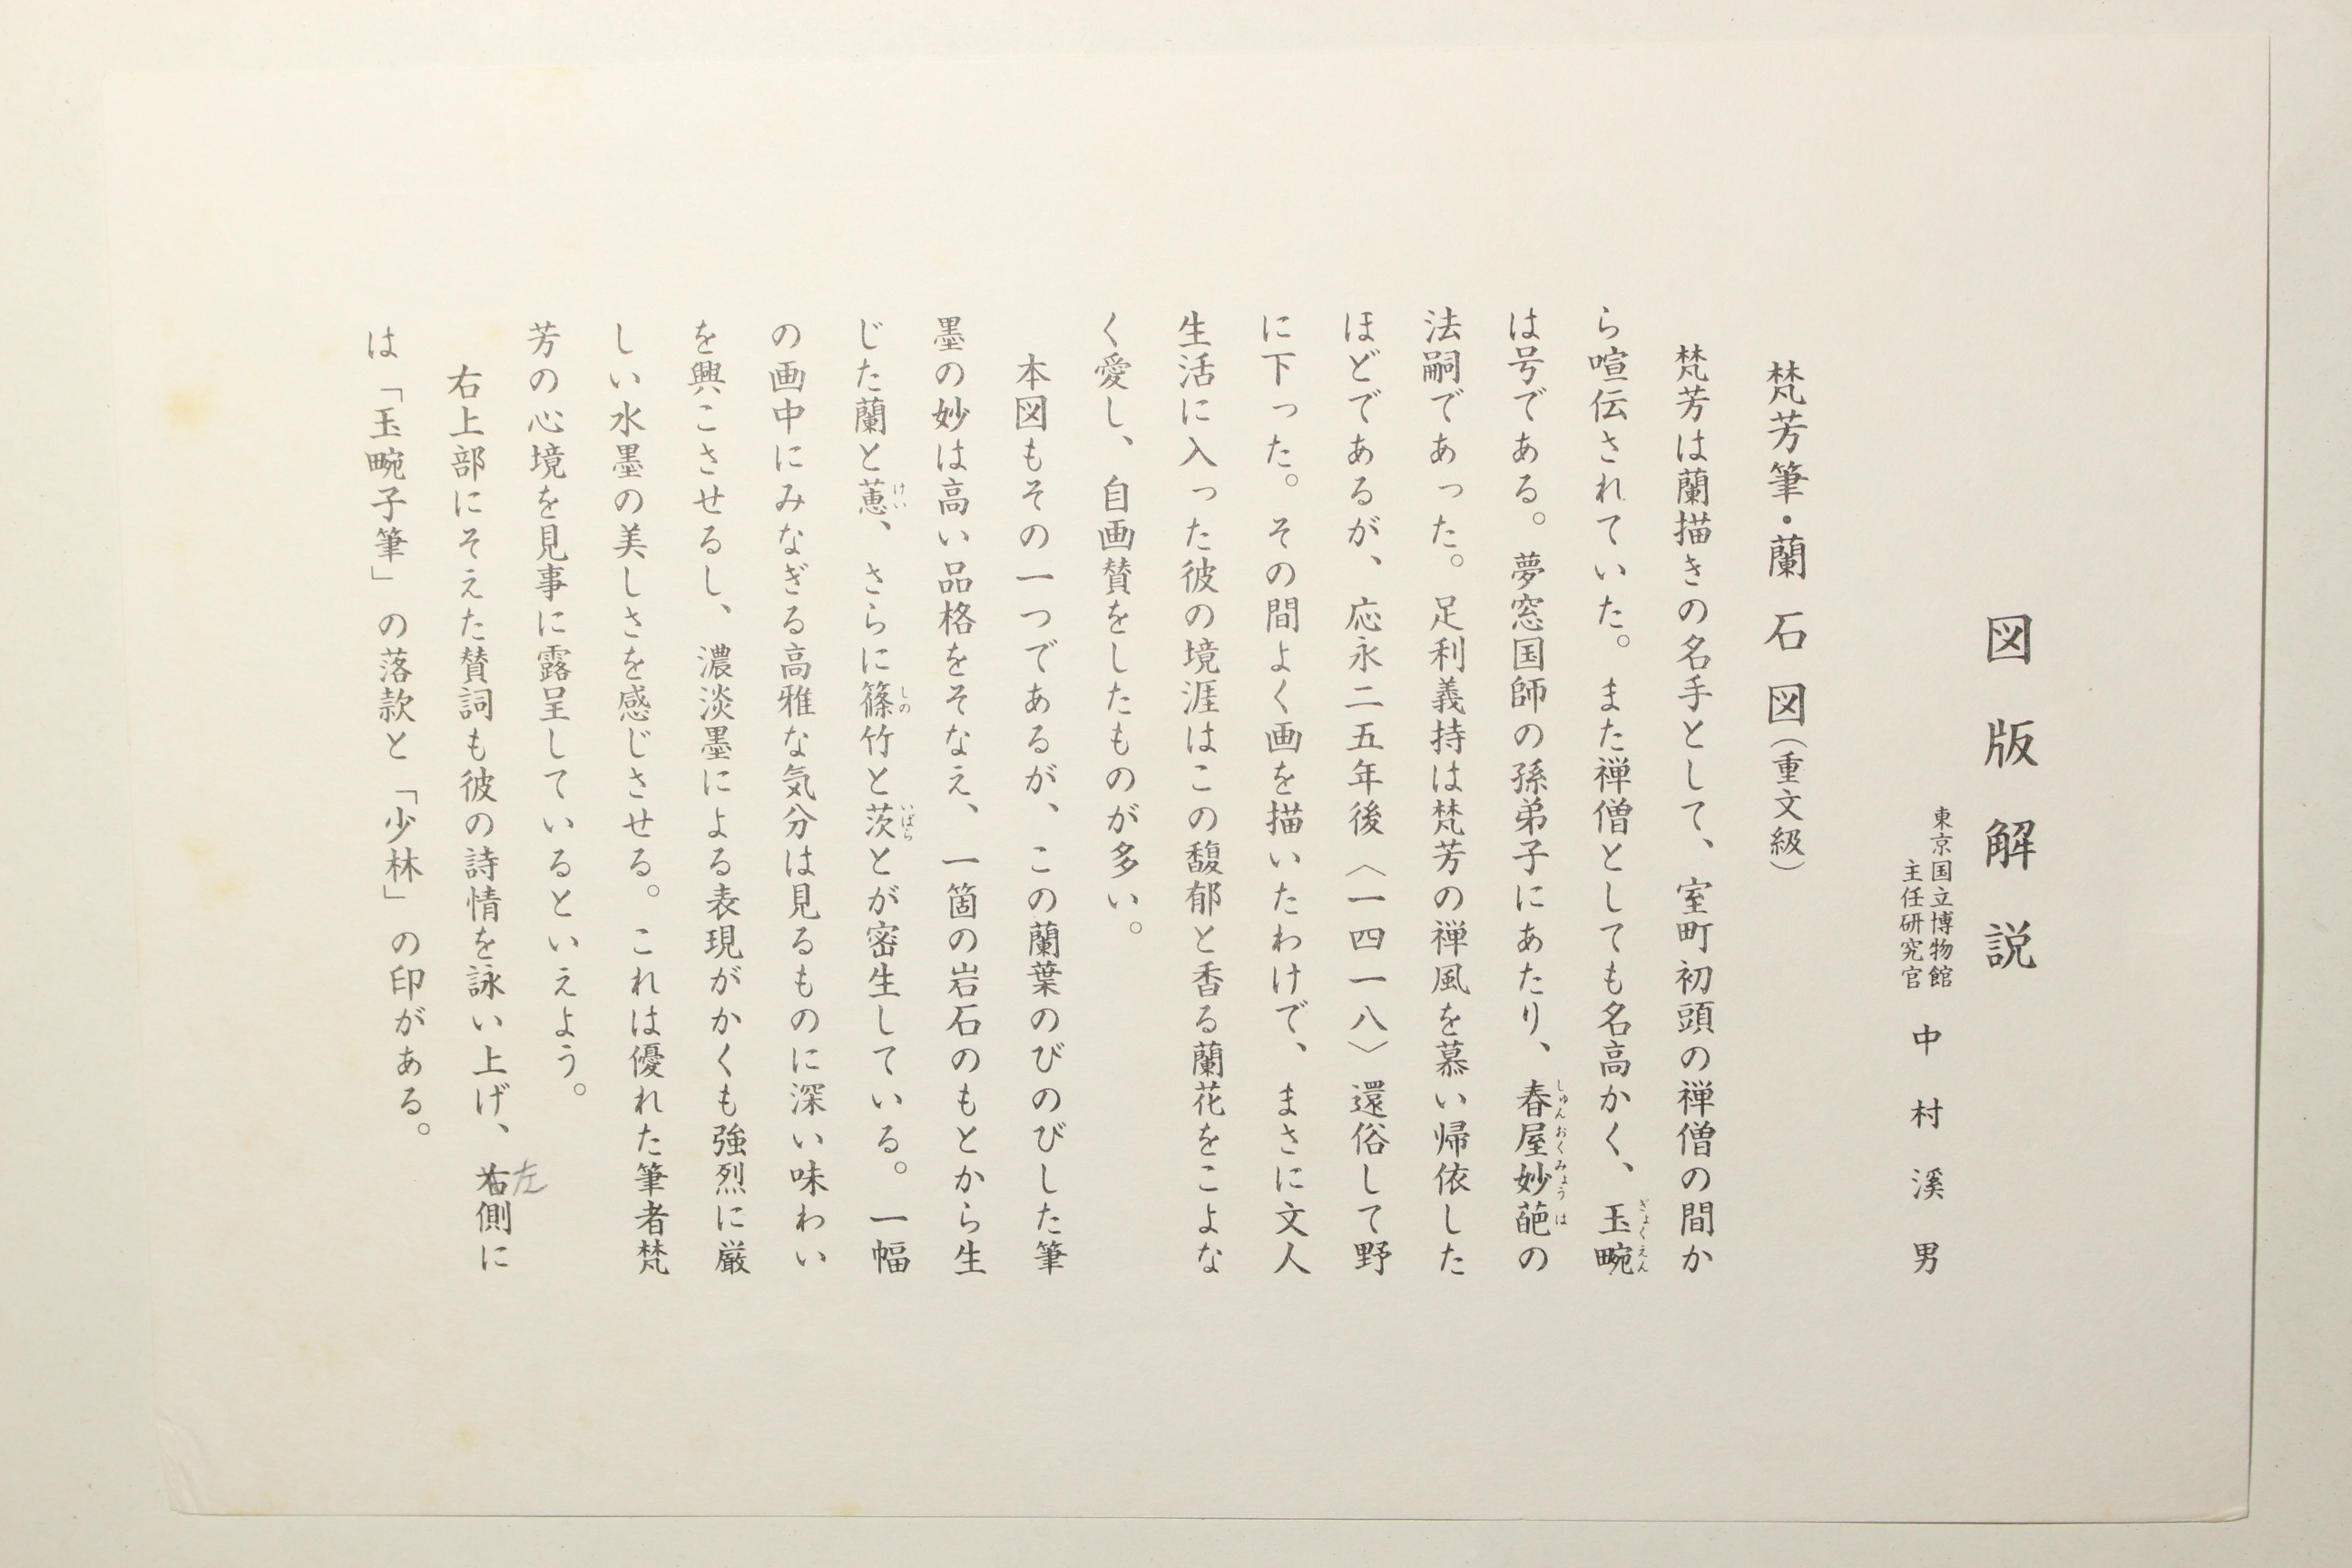 図版解説
東京国立博物館
主任研究官
中村溪男
梵芳筆・蘭石図（重文級）
梵芳は蘭描きの名手として、室町初頭の禅僧の間か
ら喧伝されていた。また禅僧としても名高かく、玉畹
は号である。夢窓国師の孫弟子にあたり、春屋妙葩の
法嗣であった。足利義持は梵芳の禅風を慕い帰依した
ほどであるが、応永二五年後〈一四一八〉還俗して野
に下った。その間よく画を描いたわけで、まさに文人
生活に入った彼の境涯はこの馥郁と香る蘭花をこよな
く愛し、自画賛をしたものが多い。
本図もその一つであるが、この蘭葉のびのびした筆
墨の妙は高い品格をそなえ、一箇の岩石のもとから生
じた蘭と蕙、さらに篠竹と茨とが密生している。一幅
の画中にみなぎる高雅な気分は見るものに深い味わい
を興こさせるし、濃淡墨による表現がかくも強烈に厳
しい水墨の美しさを感じさせる。これは優れた筆者梵
芳の心境を見事に露呈しているといえよう。
右上部にそえた賛詞も彼の詩情を詠い上げ、右側に
左
は「玉畹子筆」の落款と「少林」の印がある。
しゅんおくみょうは
ぎょくえん
けい
しの
いばら